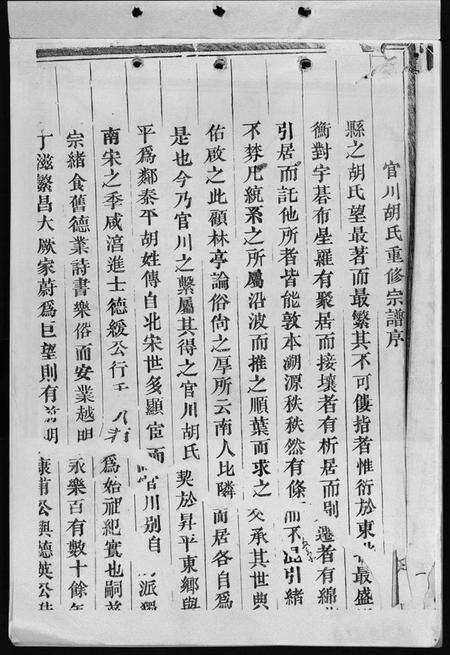 官川胡氏重修宗譜序
縣之胡氏望最著而最繁其不可僂指者惟衍於東 最盛
衡對宇碁布星羅有聚居而接壤者有析居而別 遷者有綿
引居而託他所者皆能敦本溯源秩秩然有條而不 引緒
不棼凡統系之所屬沿波而推之順葉而求之 承其世典
佑啟之此顧林亭論俗尙之厚所云南人比隣 而居各自爲
是也今乃官川之繫屬其得之官川胡氏 契於昇平東鄉與
平爲鄰泰平胡姓傳自北宋世多顯宦而 官川別自 派獨
南宋之季咸淳進士德緩公行 爲始祖紀實也嗣
宗緒食舊德業詩書樂俗而安業越明 永樂百有數十餘年
丁滋繁昌大厥家蔚爲巨望則有 明 康甫公與德英公